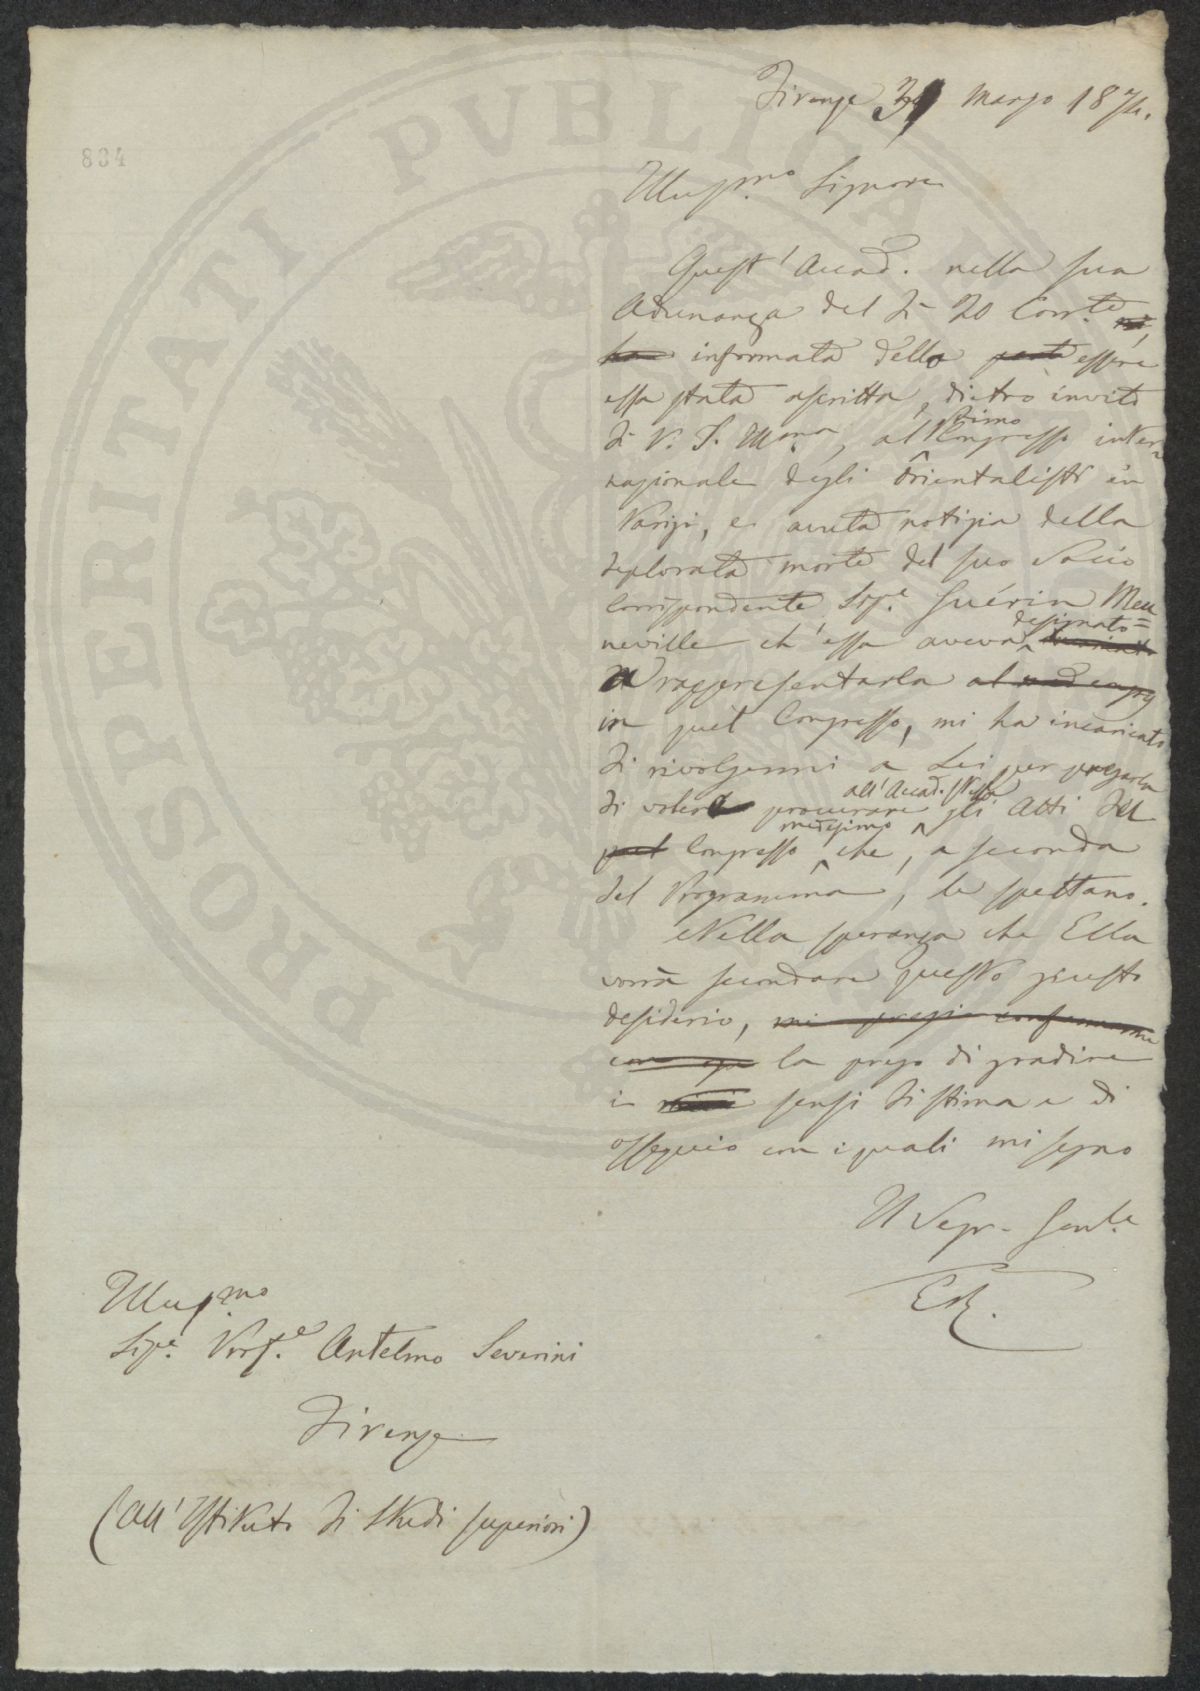 Firenze 31 Marzo 1874.
804
Illus.mo Signore
Quest'Accad. nella sua
Adunanza del dì 20 Corr.te
ha informata dello essere
essa stata ascritta, dietro invito
di V. S. Ill.ma, al primo Congresso inter
nazionale degli Orientalisti in
Parigi, e avuta notizia della
deplorata morte del suo Socio
Corrispondente Sig.e Guérin Men
neville ch'essa aveva designato=
a rappresentarla al
in quel Congresso, mi ha incaricato
di rivolgermi a Lei per pregarla
di volere procurare all'Accad. stessa gli Atti del
quel Congresso medesimo che, a seconda
del Programma, le spettano.
Nella speranza che Ella
vorrà secondare questo giusto
desiderio, mi pregio confermarme
con ogn la prego di gradire
i miei sensi di stima e di
ossequio con i quali mi segno
Il Segr. Gen.le
Illus.mo
Sig.e Prof.e Antelmo Severini
Firenze
(All'Istituto di Studi superiori)
PROSPERITATI PVBLICAE